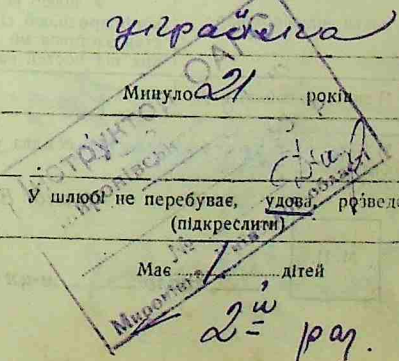 українка
Минуло 21 років
У шлюбі не перебуває, удова, розведе
(підкреслити)
Має 1 дітей
2й раз.
Інструктор ОАГС
№